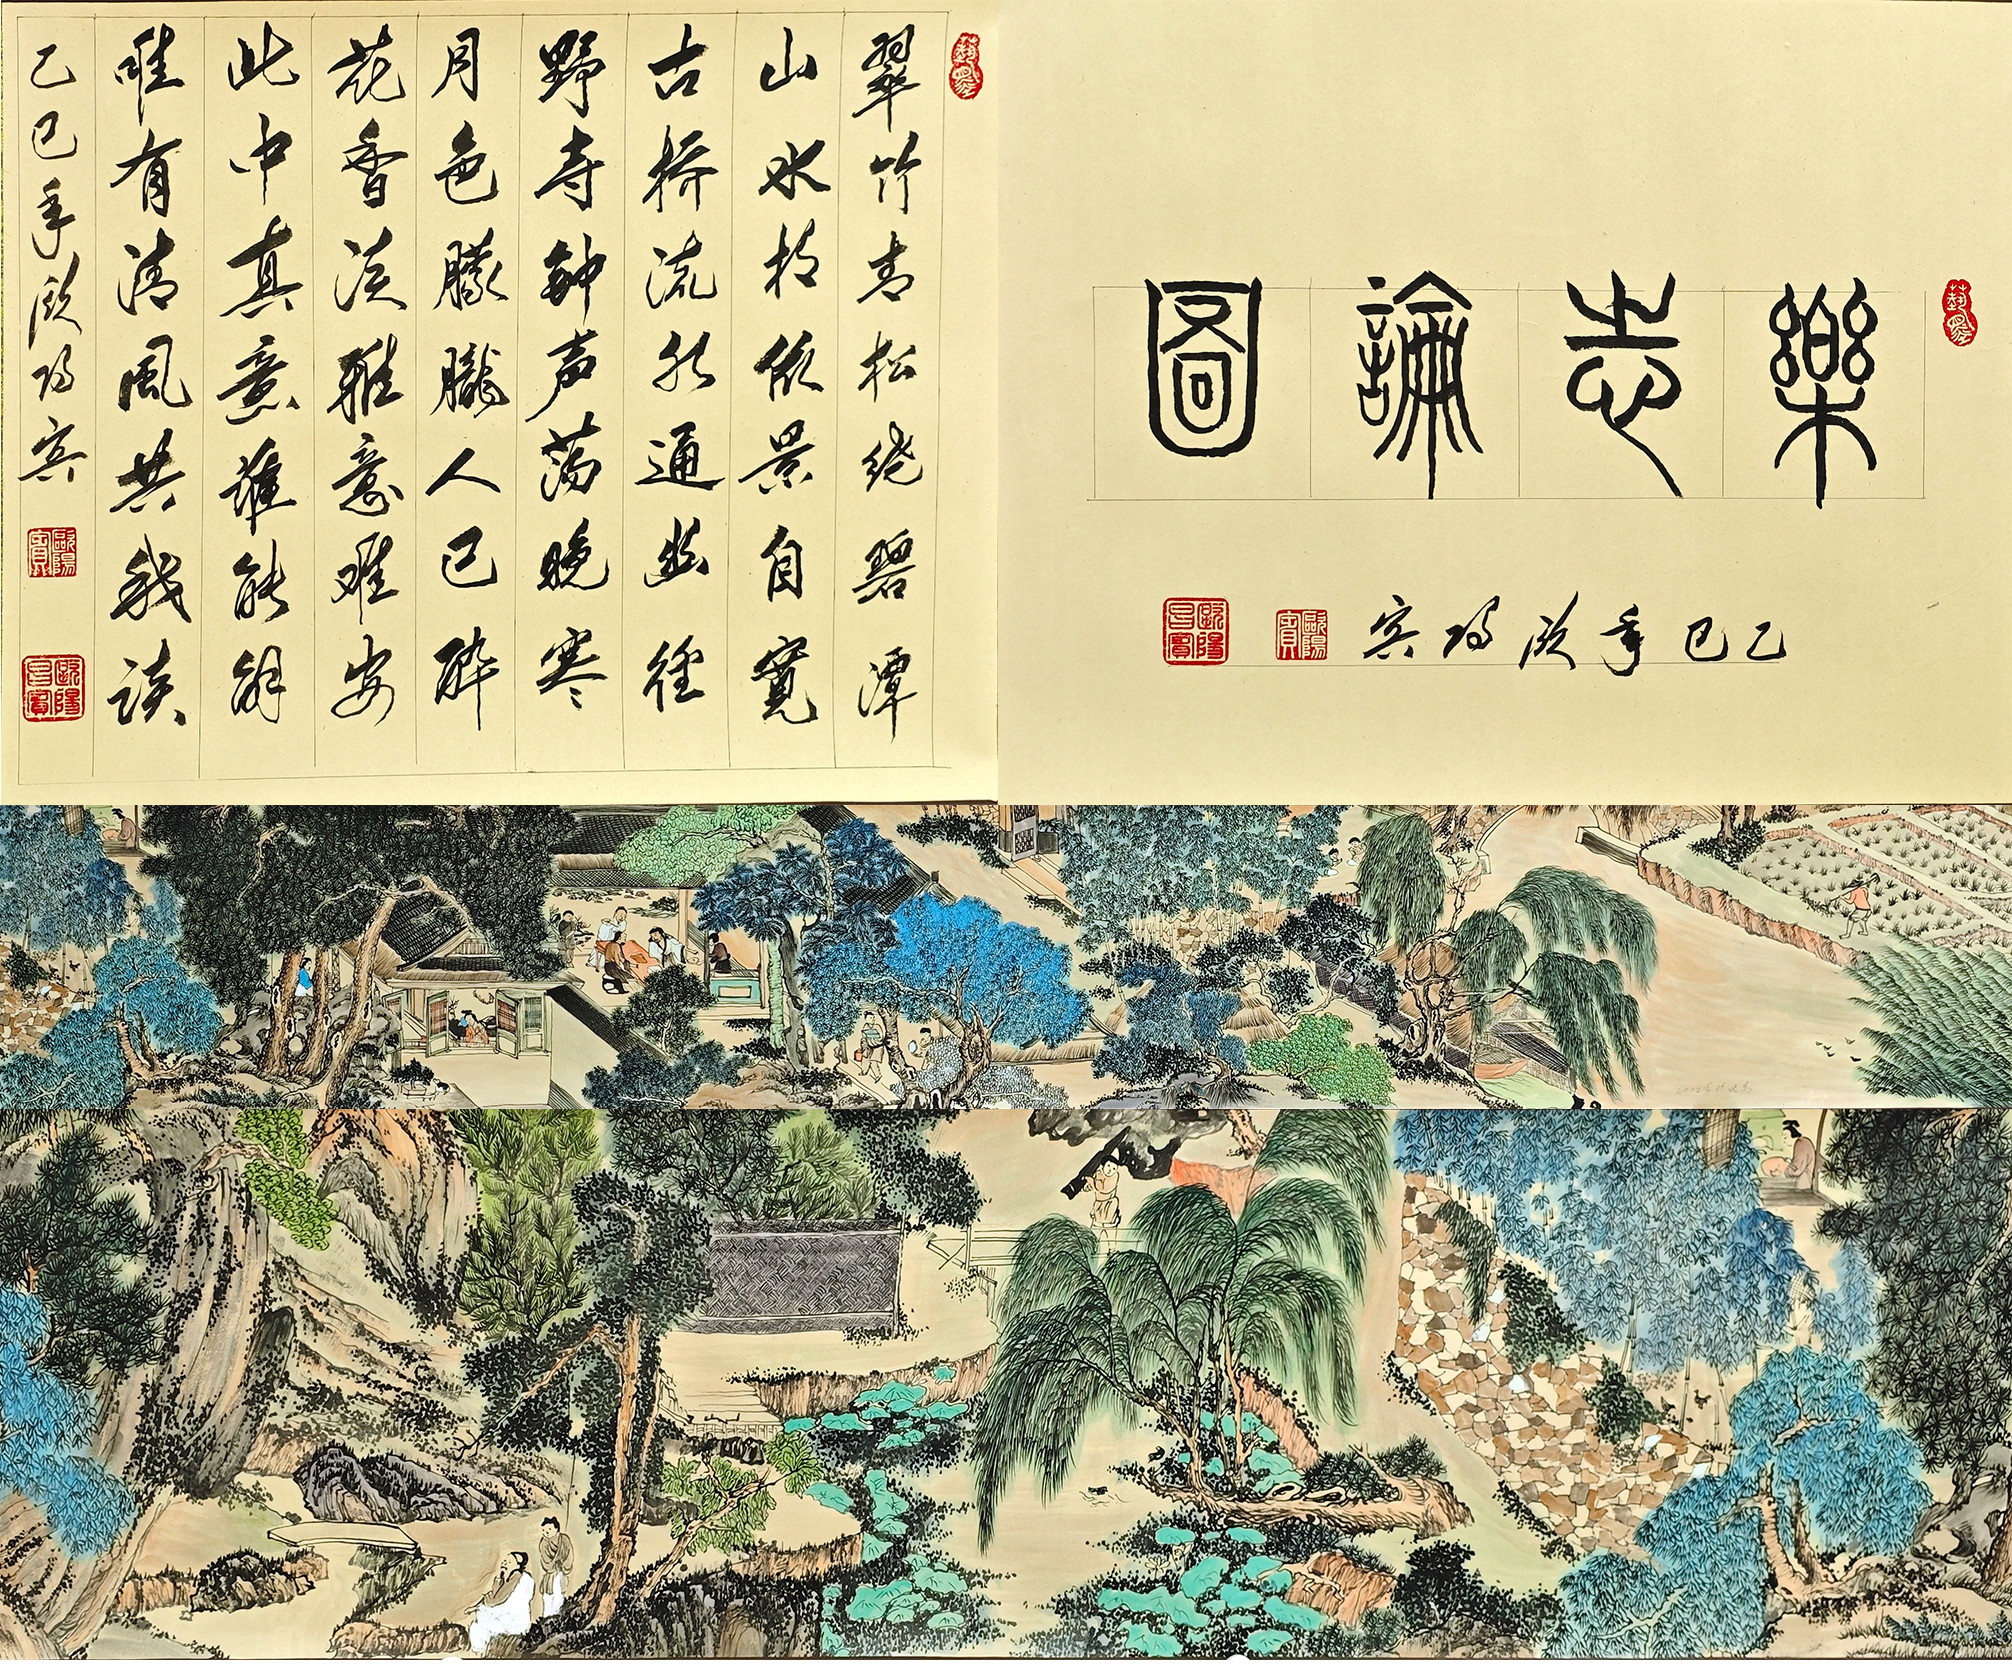 樂志論圖
乙巳年欧阳宾
歐陽賓
翠竹青松绕碧潭
山水相依景自寬
古桥流水通幽径
野寺钟声荡晚寒
月色朦朧人已醉
花香淡雅意难安
此中真意谁能解
唯有清风共我谈
乙巳年欧阳宾
歐陽賓